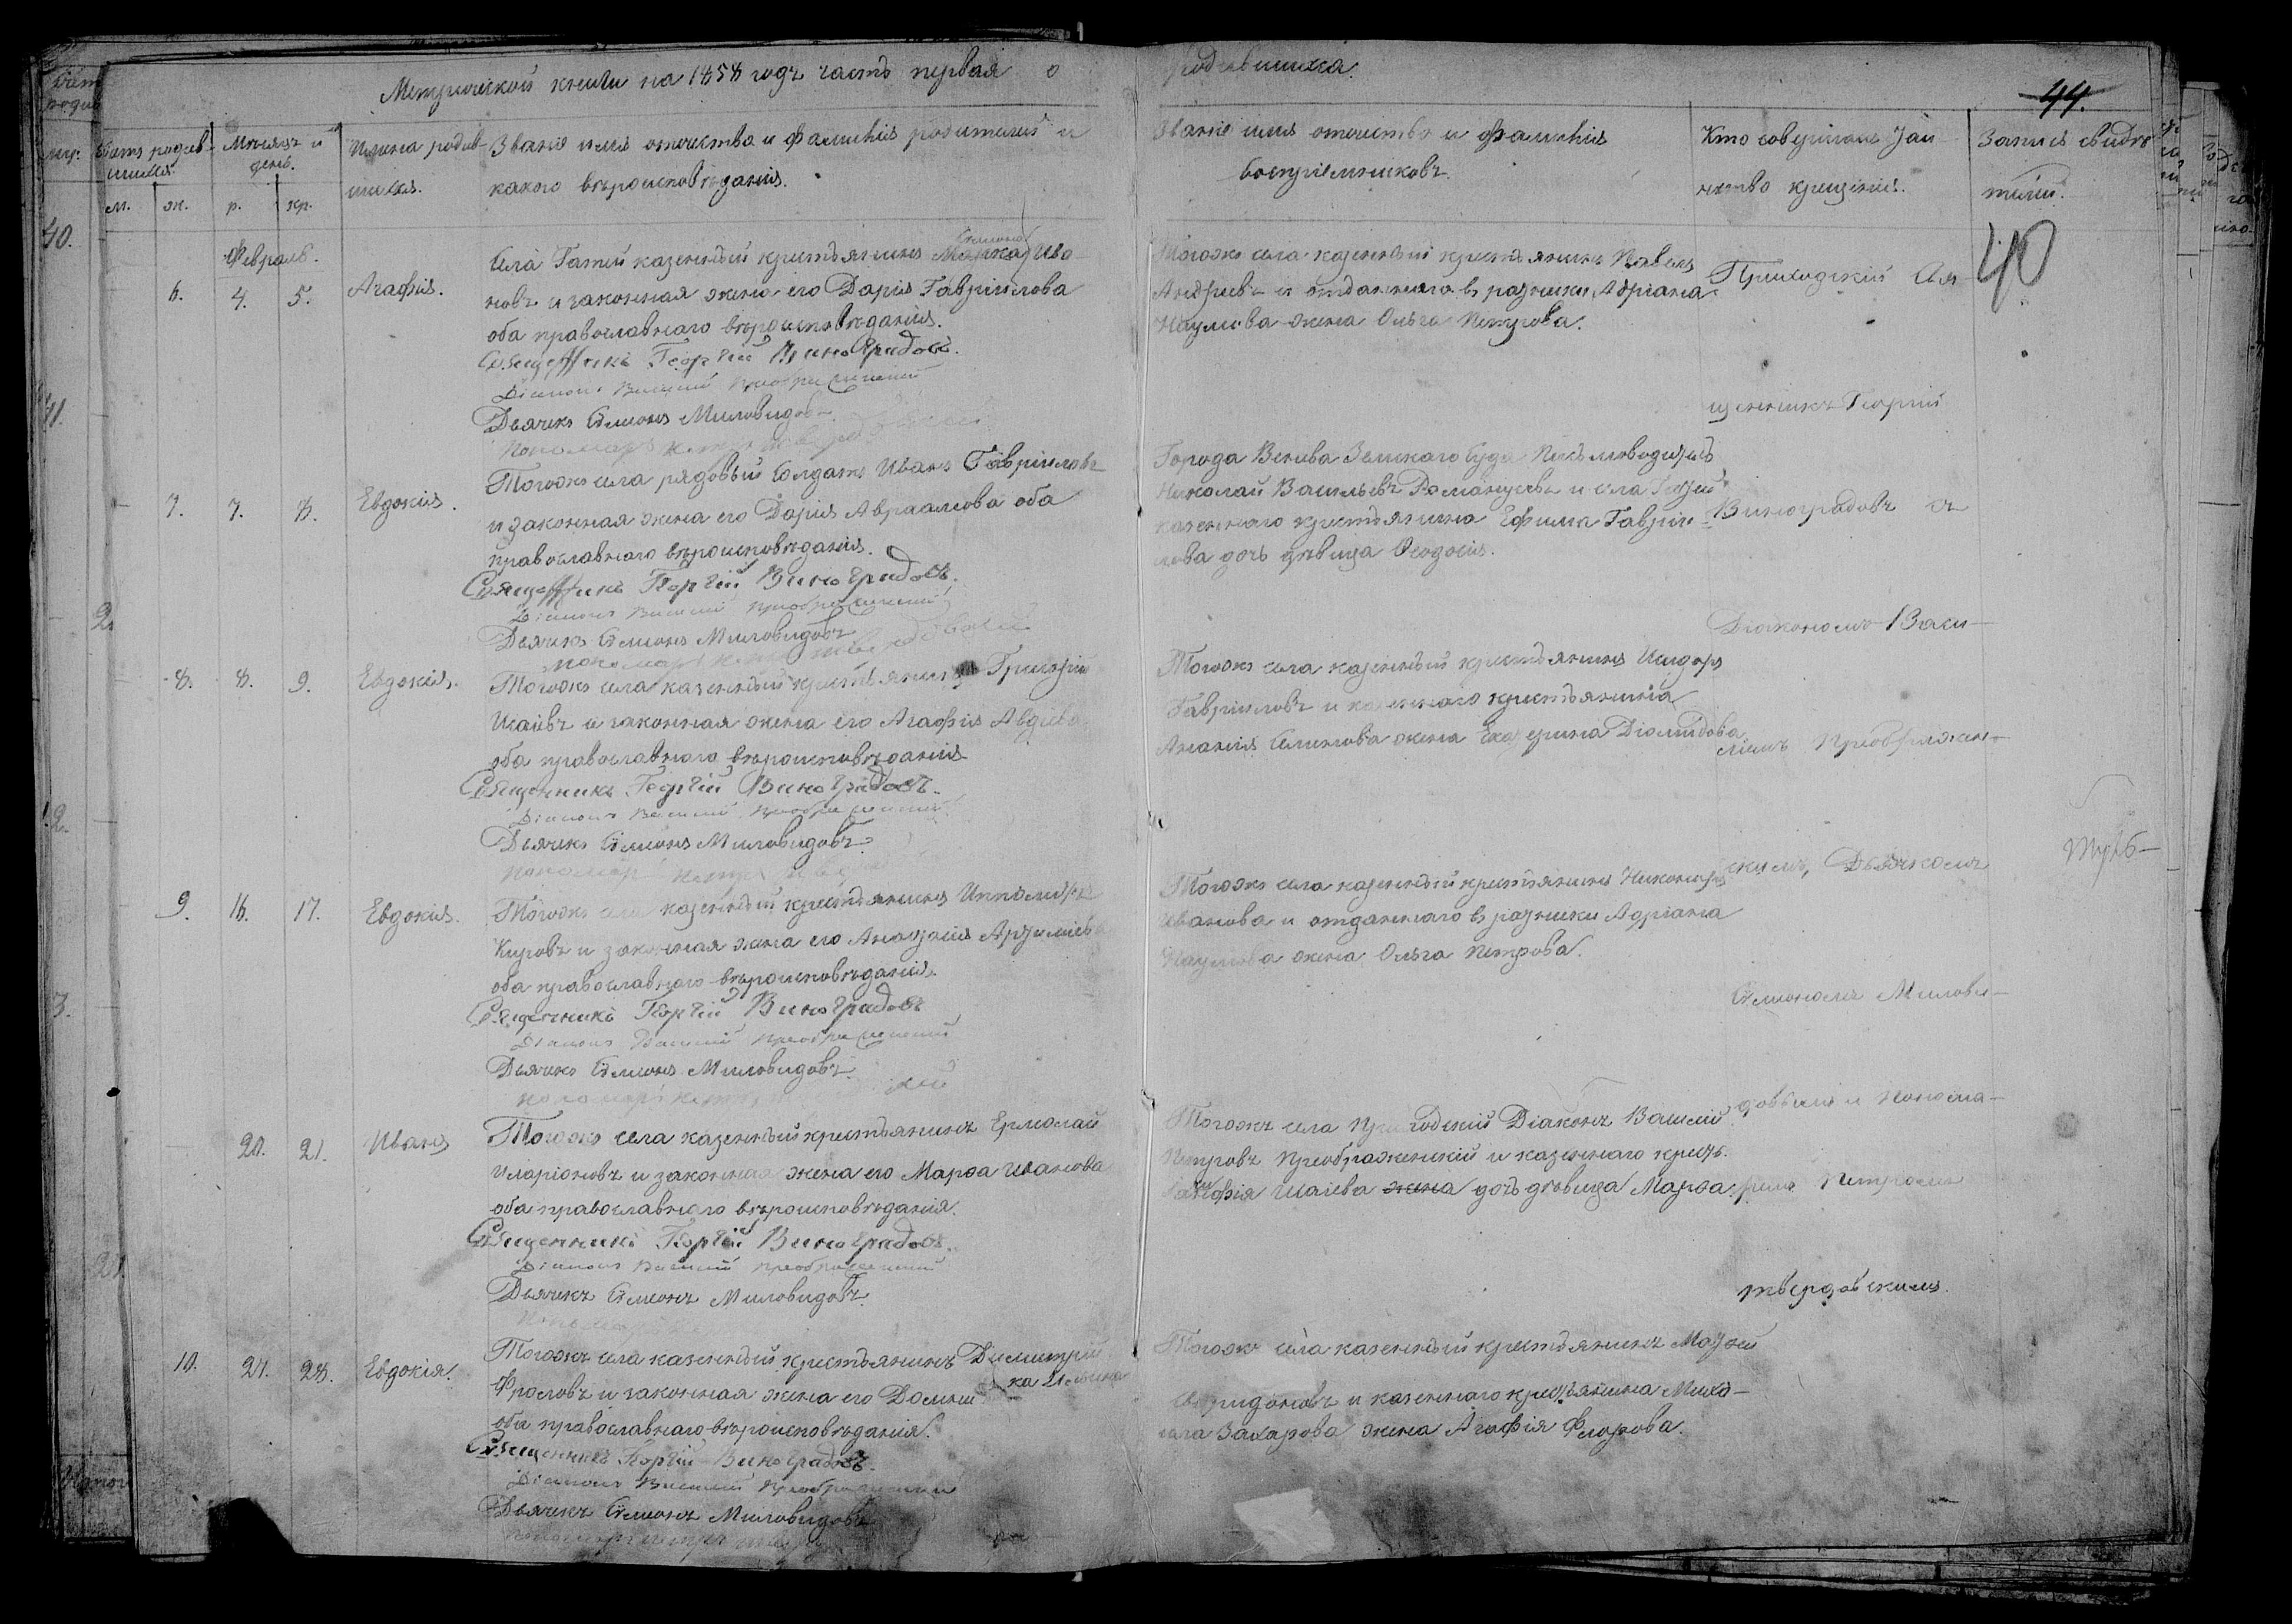 Метрической книги на 1858 годъ часть первая о
родившихся.
44.
Счетъ родив-
шихся.
м. ж.
Мѣсяцъ и
день.
р. кр.
Имена родив-
шихся.
Званіе имя отчество и фамилія родителей и
какого вѣроисповѣданія.
Званіе имя отчество и фамилія
воспріемниковъ.
Кто совершалъ Таин
ство крещенія.
Запись свидѣ
тели.
40
Февраль.
6. 4. 5. Агафія.
Села Гатей казенный крестьянинъ Ива-
новъ и законная жена его Дарія Гавріилова
оба православнаго вѣроисповѣданія.
Священникъ Георгій Виноградовъ.
Діаконъ Василій Преображенскій
Дьячекъ Симонъ Миловидовъ
Тогожъ села казенный крестьянинъ Павелъ
Андреевъ и отданнаго въ рядники Адріана
Наумова жена Ольга Петрова.
Приходскій Свя
щенникъ Георгій
7. 7. 8. Евдокія.
Тогожъ села рядовый Солдатъ Иванъ Гавріиловъ
и законная жена его Дарія Авраамова оба
православнаго вѣроисповѣданія.
Священникъ Георгій Виноградовъ.
Діаконъ Василій Преображенскій
Дьячекъ Симонъ Миловидовъ
Города Венева Земскаго Суда Письмоводитель
Николай Васильевъ и села Гатей
казеннаго крестьянина Ефима Гаврі-
лова дочь дѣвица Ѳеодосія.
Виноградовъ съ
Діакономъ Васи-
8. 8. 9. Евдокія.
Тогожъ села казенный крестьянинъ Григорій
Исаевъ и законная жена его Агафія Авдіева
оба православнаго вѣроисповѣданія
Священникъ Георгій Виноградовъ.
Діаконъ Василій Преображенскій
Дьячекъ Симонъ Миловидовъ.
Тогожъ села казенный крестьянинъ Исидоръ
Гавріиловъ и казеннаго крестьянина
Ананія Симонова жена Екатерина Діомидова
ліемъ Преображен-
9. 16. 17. Евдокія.
Тогожъ села казенный крестьянинъ Ипполитъ
Кировъ и законная жена его Анастасія Артеміева
оба православнаго вѣроисповѣданія.
Священникъ Георгій Виноградовъ
Діаконъ Василій Преображенскій
Дьячекъ Симонъ Миловидовъ.
Тогожъ села казенный крестьянинъ Никаноръ
Ивановъ и отданнаго въ рядники Адріана
Наумова жена Ольга Петрова.
скимъ, Дьячкомъ
Симономъ Милови-
20. 21. Иванъ
Тогожъ села казенный крестьянинъ Ермолай
Иларіоновъ и законная жена его Марѳа Иванова
оба православнаго вѣроисповѣданія.
Священникъ Георгій Виноградовъ.
Діаконъ Василій Преображенскій
Дьячекъ Симонъ Миловидовъ.
Тогожъ села Приходскій Діаконъ Василій
Петровъ Преображенскій и казеннаго крест.
Исаева жена дочь дѣвица Марѳа.
довымъ и Понома-
ремъ Петромъ
Твердовскимъ.
10. 27. 28. Евдокія.
Тогожъ села казенный крестьянинъ Димитрій
Фроловъ и законная жена его Домни
ка Ильина
оба православнаго вѣроисповѣданія.
Священникъ Георгій Виноградовъ.
Діаконъ Василій Преображенскій
Дьячекъ Симонъ Миловидовъ
Тогожъ села казенный крестьянинъ Моѵсей
Спиридоновъ и казеннаго крестьянина Миха-
ила Захарова жена Агафія Флорова.